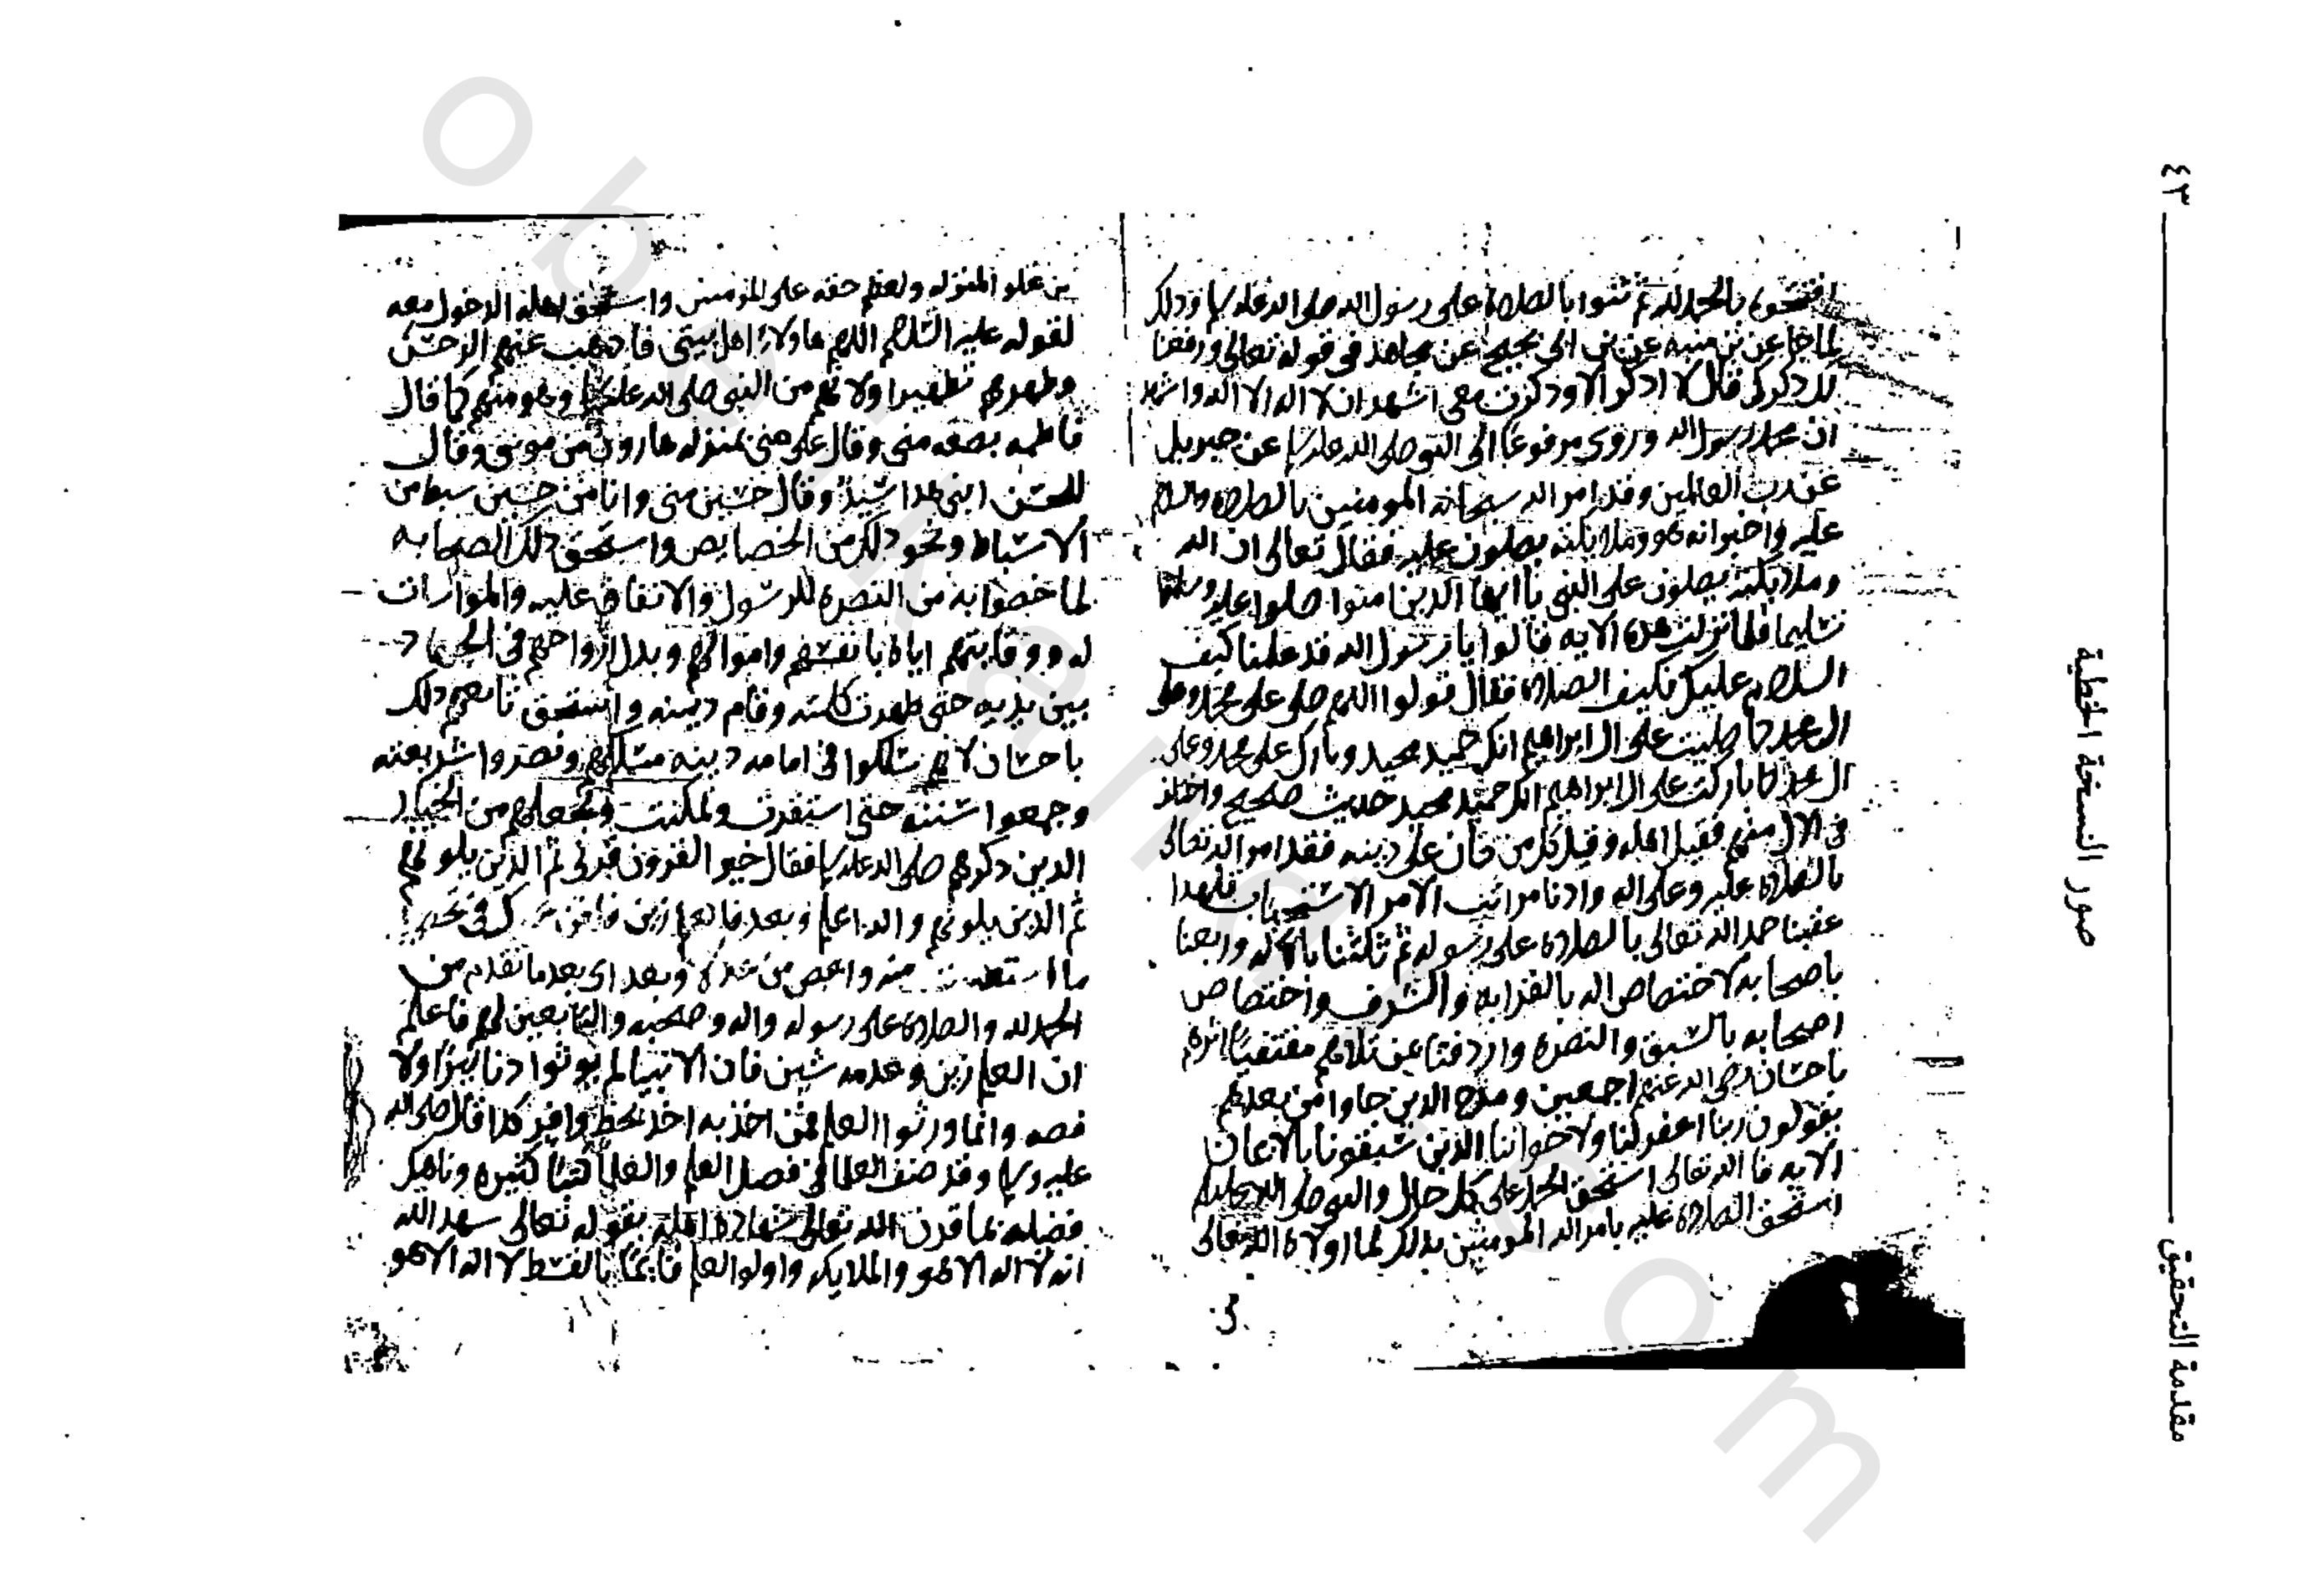 مقدمة التحقيق
٤٣
صور النسخة الخطية
افتتحوه بالحمد لله ثم ثنوا بالصلاه على رسول الله صلى الله عليه وسلم وذلك
لما جا عن بن عن بن ابي نجيح عن مجاهد في قوله تعالى ورفعنا
لك ذكرك قال لا اذكر الا وذكرت معي اشهد ان لا اله الا الله واشهد
ان محمدا رسول الله وروى مرفوعا الى النبي صلى الله عليه وسلم عن جبريل
عن رب العالمين وقد امر الله سبحانه المومنين بالصلاه والسلام
عليه واخبر انه هو وملايكته يصلون عليه فقال تعالى ان الله
وملايكته يصلون على النبي يا ايها الذين امنوا صلوا عليه وسلموا
تسليما فلما نزلت هذه الايه قالوا يا رسول الله قد علمنا كيف
السلام عليك فكيف الصلاه فقال قولوا اللهم صلي على محمد وعلى
ال محمد كما صليت على ال ابراهيم انك حميد مجيد وبارك على محمد وعلى
ال محمد كما باركت على ال ابراهيم انك حميد مجيد حديث صحيح واختلف
في الال منهم فقيل اهله وقيل كل من كان على دينه فقد امر الله تعالى
بالصلاه عليه وعلى اله وادنا مراتب الامر الاستحباب فلهذا
عقبنا حمد الله تعالى بالصلاه على رسوله ثم ثلثنا باله وربعنا
باصحابه لاختصاص اله بالقرابه والشرف واختصاص
اصحابه بالسبق والنصره واردفنا عن تلاهم مقتفيا اثرهم
باحسان رضي الله عنهم اجمعين ومدح الذين جاوا من بعدهم
يقولون ربنا اغفر لنا ولاخواننا الذين سبقونا بالايمان
الايه فالله تعالى استحق الحمد على كل حال والنبي صلى الله عليه وسلم
استحق الصلاه عليه بامر الله المومنين بذلك لما اولاه الله تعالى
من علو المنزله ولعظم حقه على المومنين واستحق اهله الدخول معه
لقوله عليه السلام اللهم هاولاء اهل بيتي فاذهب عنهم الرجس
وطهرهم تطهيرا ولانهم من النبي صلى الله عليه وسلم وهو منهم كما قال
فاطمه بضعه مني وقال علي مني بمنزله هارون من موسى وقال
للحسن ابني هذا سيد وقال حسين مني وانا من حسين سبط من
الاسباط ونحو ذلك من الخصايص واستحق ذلك الصحابه
لما خصوا به من النصره للرسول والانفاق عليه والموازرات
له ووقايتهم اياه بانفسهم واموالهم وبذل ارواحهم في الجهاد
بين يديه حتى ظهرت كلمته وقام دينه واستحق تابعهم ذلك
باحسان لانهم سلكوا في اقامه دينه مسلكهم ونصروا شريعته
وجمعوا سنته حتى استقرت وتمكنت ولجعلهم من الخيار
الذين ذكرهم صلى الله عليه وسلم فقال خير القرون قرني ثم الذين يلونهم
ثم الذين يلونهم والله اعلم وبعد فالعلم زين
ما منه من وبعد اي بعد ما تقدم من
الحمد لله والصلاه على رسوله واله وصحبه والتابعين لهم فاعلم
ان العلم زين وعدمه شين فان الانبيا لم يورثوا دنانيرا ولا
فضه وانما ورثوا العلم فمن اخذ به اخذ بحظ وافر كذا قال صلى الله
عليه وسلم وقد صنف العلما في فضل العلم والعلما كتبا كثيره وناهيك
فضله بما قرن الله تعالى شهادة اهله بقوله تعالى شهد الله
انه لا اله الا هو والملايكه واولوا العلم قايما بالقسط لا اله الا هو
obeikandl.com